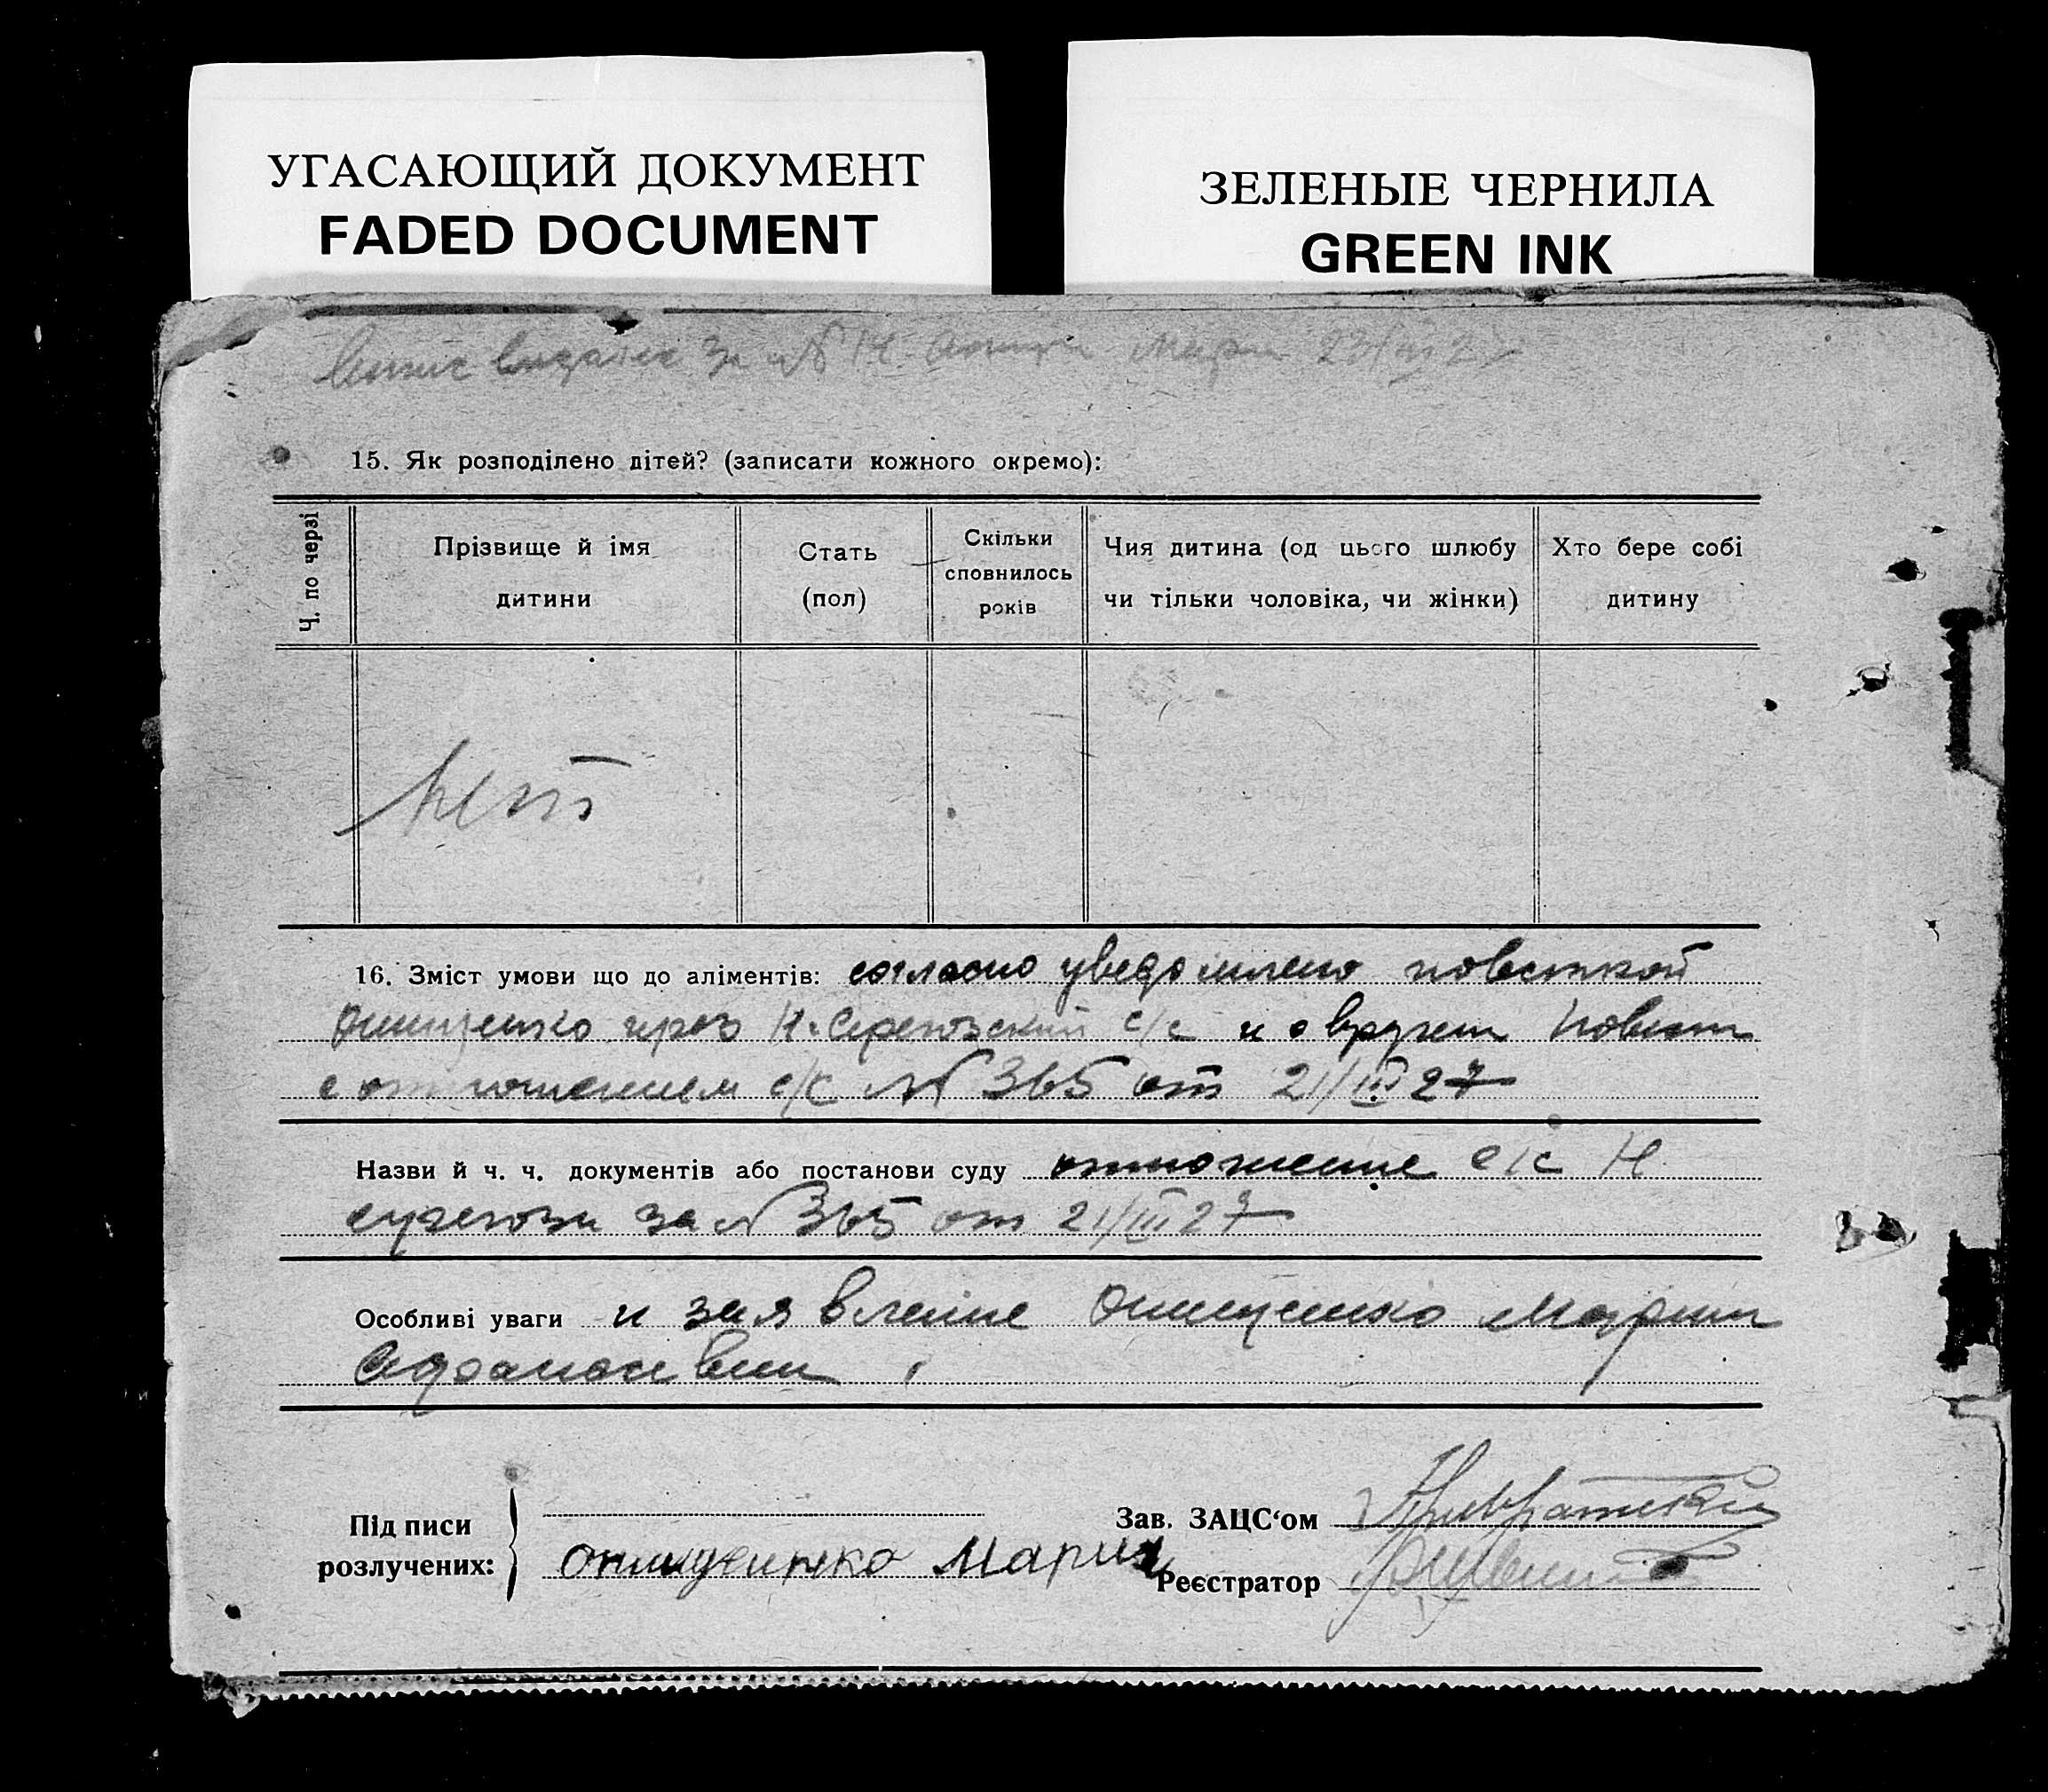 УГАСАЮЩИЙ ДОКУМЕНТ
FADED DOCUMENT
ЗЕЛЕНЫЕ ЧЕРНИЛА
GREEN INK
за № 14 23/III 27
15. Як розподілено дітей? (записати кожного окремо):
Ч. по черзі
Прізвище й імя дитини
Стать (пол)
Скільки сповнилось років
Чия дитина (од цього шлюбу чи тільки чоловіка, чи жінки)
Хто бере собі дитину
нет
16. Зміст умови що до аліментів: согласно уведомлено повесткой
Онищенко через с/с и о вручен повест
с отношением с/с № 365 от 21/III 27
Назви й ч. ч. документів або постанови суду отношение с/с Н
за № 365 от 21/III 27
Особливі уваги и заявление Онищенко Марии
Підписи розлучених:
онищенко Мария
Зав. ЗАЦС‘ом
Реєстратор